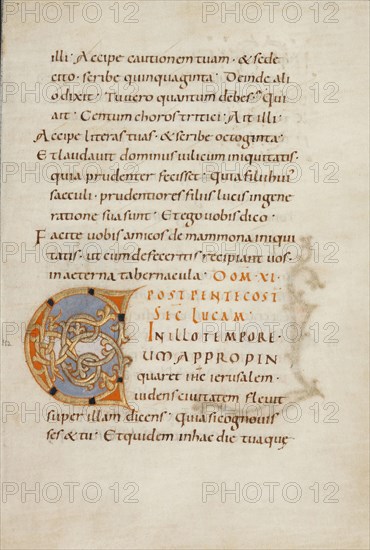 illi. Accipe cautionem tuam. & sede
cito. scribe quinquaginta. Deinde ali
o dixit. Tu vero quantum debes? Qui
ait. Centum choros tritici. Ait illi.
Accipe literas tuas. & scribe octoginta.
Et laudavit dominus vilicum iniquitatis.
quia prudenter fecisset. Quia filii huiꝰ
saeculi. prudentiores filiis lucis in gene
ratione sua sunt. Et ego vobis dico.
Facite vobis amicos de mammona iniqui
tatis. ut cum defeceritis recipiant vos.
in aeterna tabernacula. DOM. XI.
POST PENTECOST
SEC LUCAM.
IN ILLO TEMPORE.
CUM APPROPIN
quaret ihc ierusalem.
videns civitatem flevit
super illam dicens. Quia si cognovis
ses & tu. Et quidem in hac die tua que
PHOTO 12